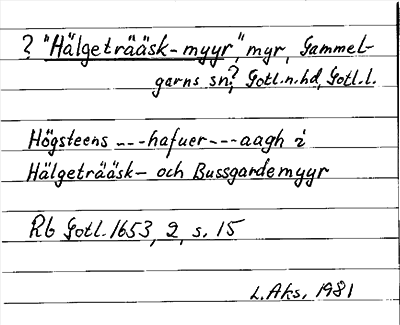 ? "Hälgeträäsk-myyr", myr, Gammel-
garns sn?, Gotl.n.hd, Gotl.l.
Högsteens ---hafuer---aagh i
Hälgeträäsk- och Bussgardemyyr
Rb Gotl. 1653, 2, s. 15
L. Aks. 1981